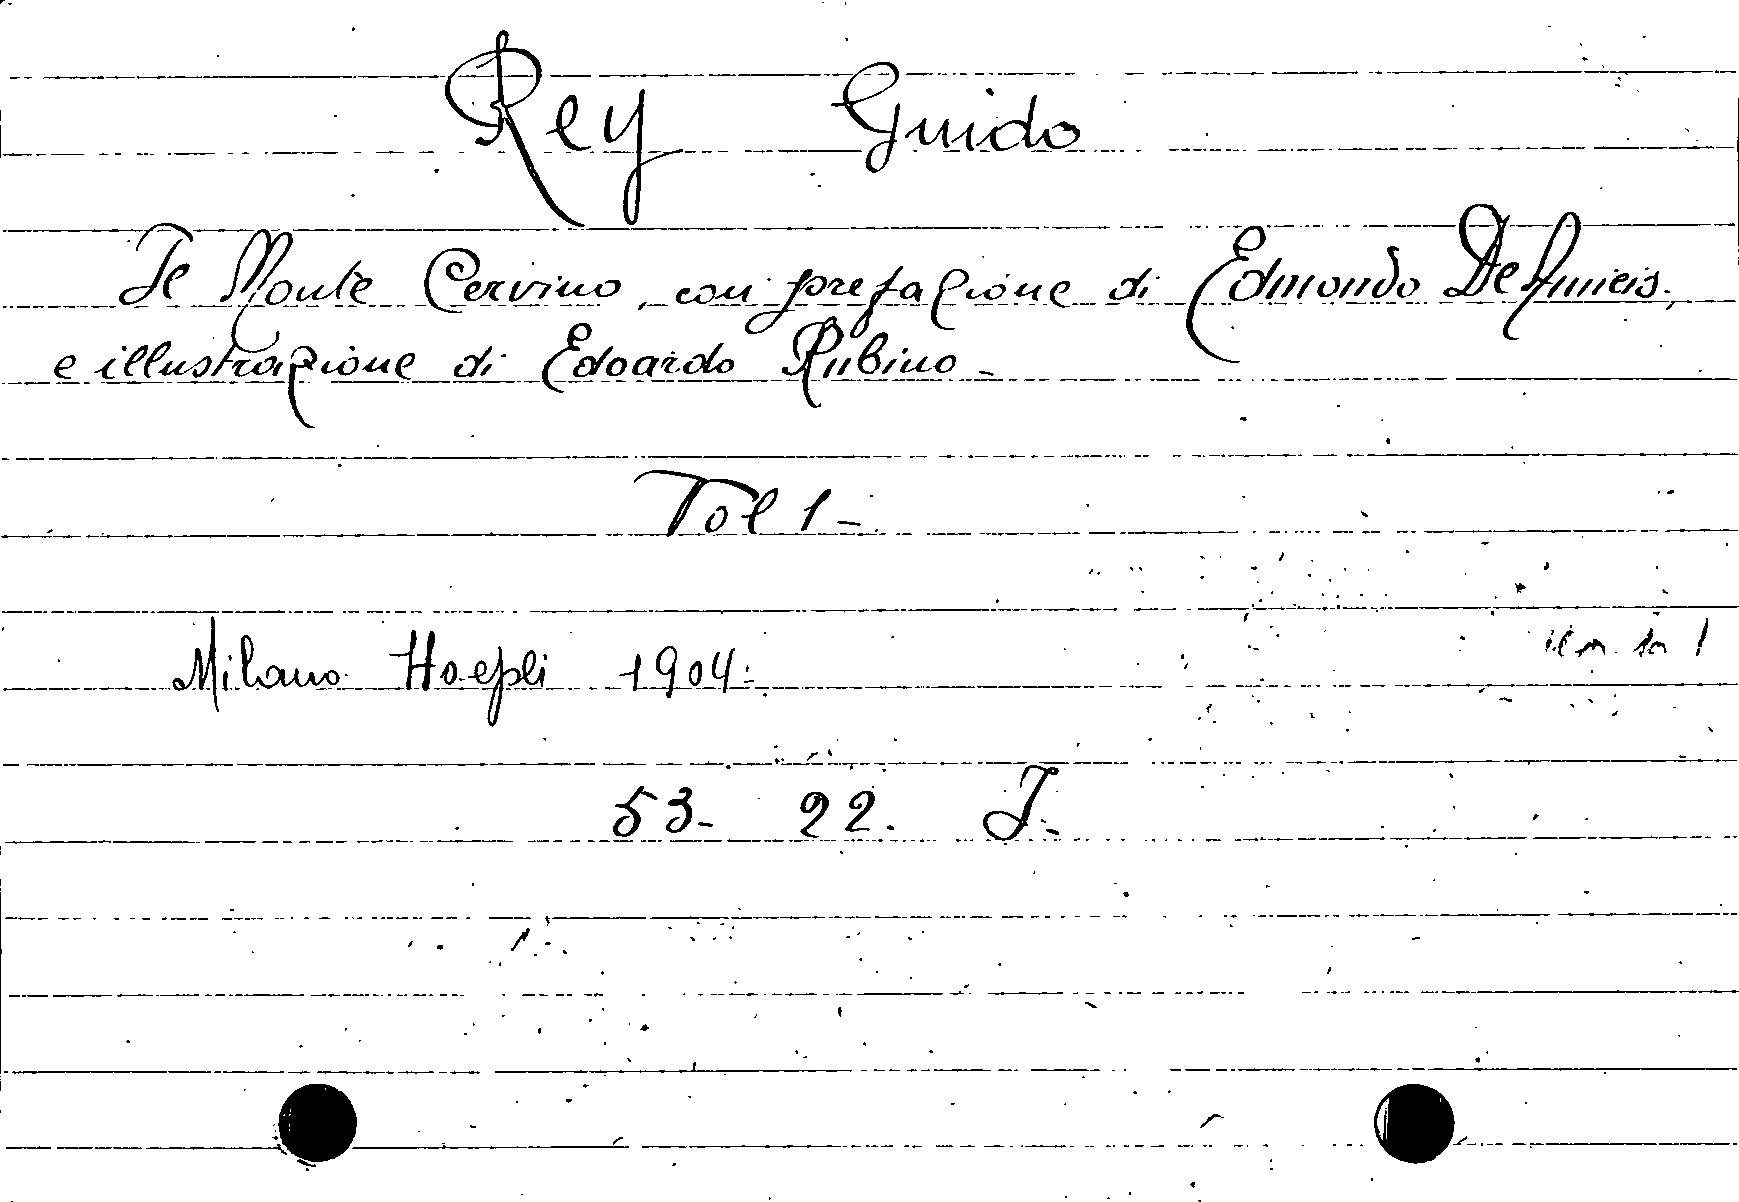 Rey Guido
Il Monte Cervino, con prefazione di Edmondo De Amicis,
e illustrazione di Edoardo Rubino -
Vol 1 -
Milano Hoepli 1904.
53- 22. I-